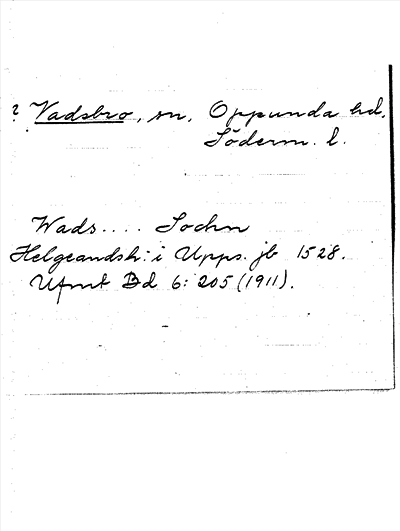 ? Vadsbro, sn, Oppunda hd,
Söderm. l.
Wads.... Sochn
Helgeandsh: i Upps. jb 1528.
Ufmt Bd 6: 205 (1911).